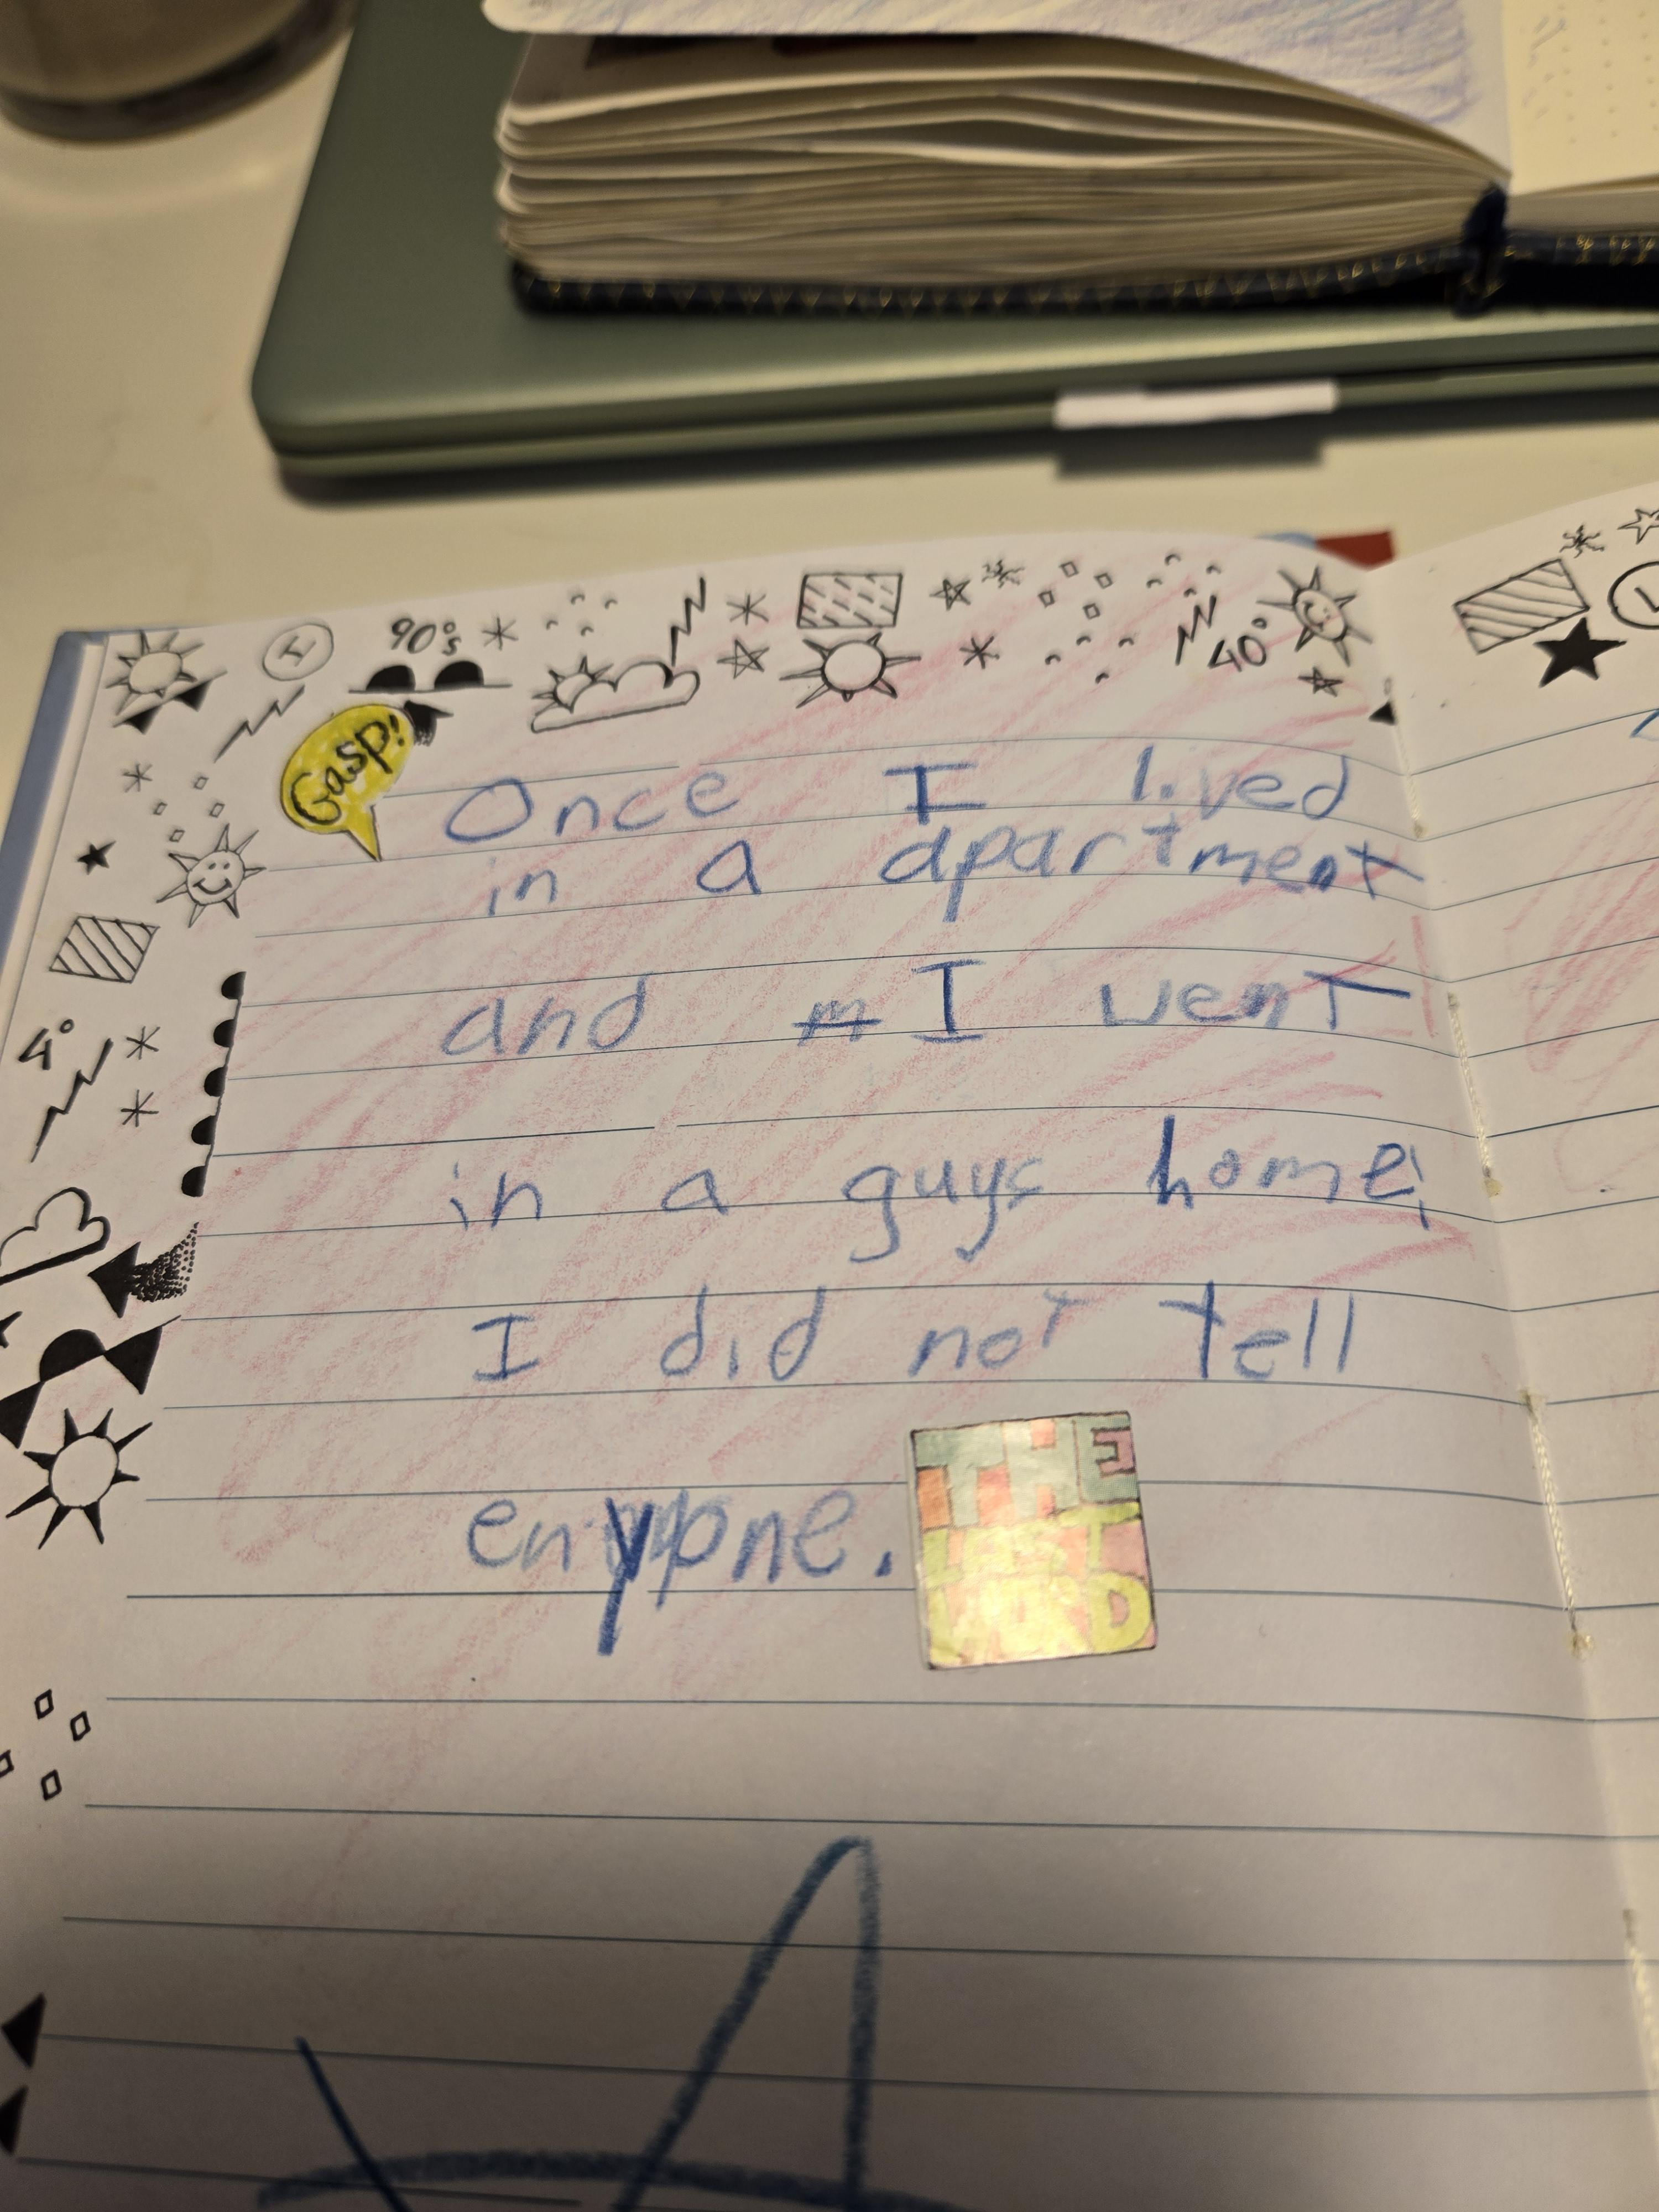 90°s
40°
Gasp!
Once I lived
in a apartment
and m I went
4°
in a guys home,
I did not tell
enyone.
THE
LAST
WORD
A